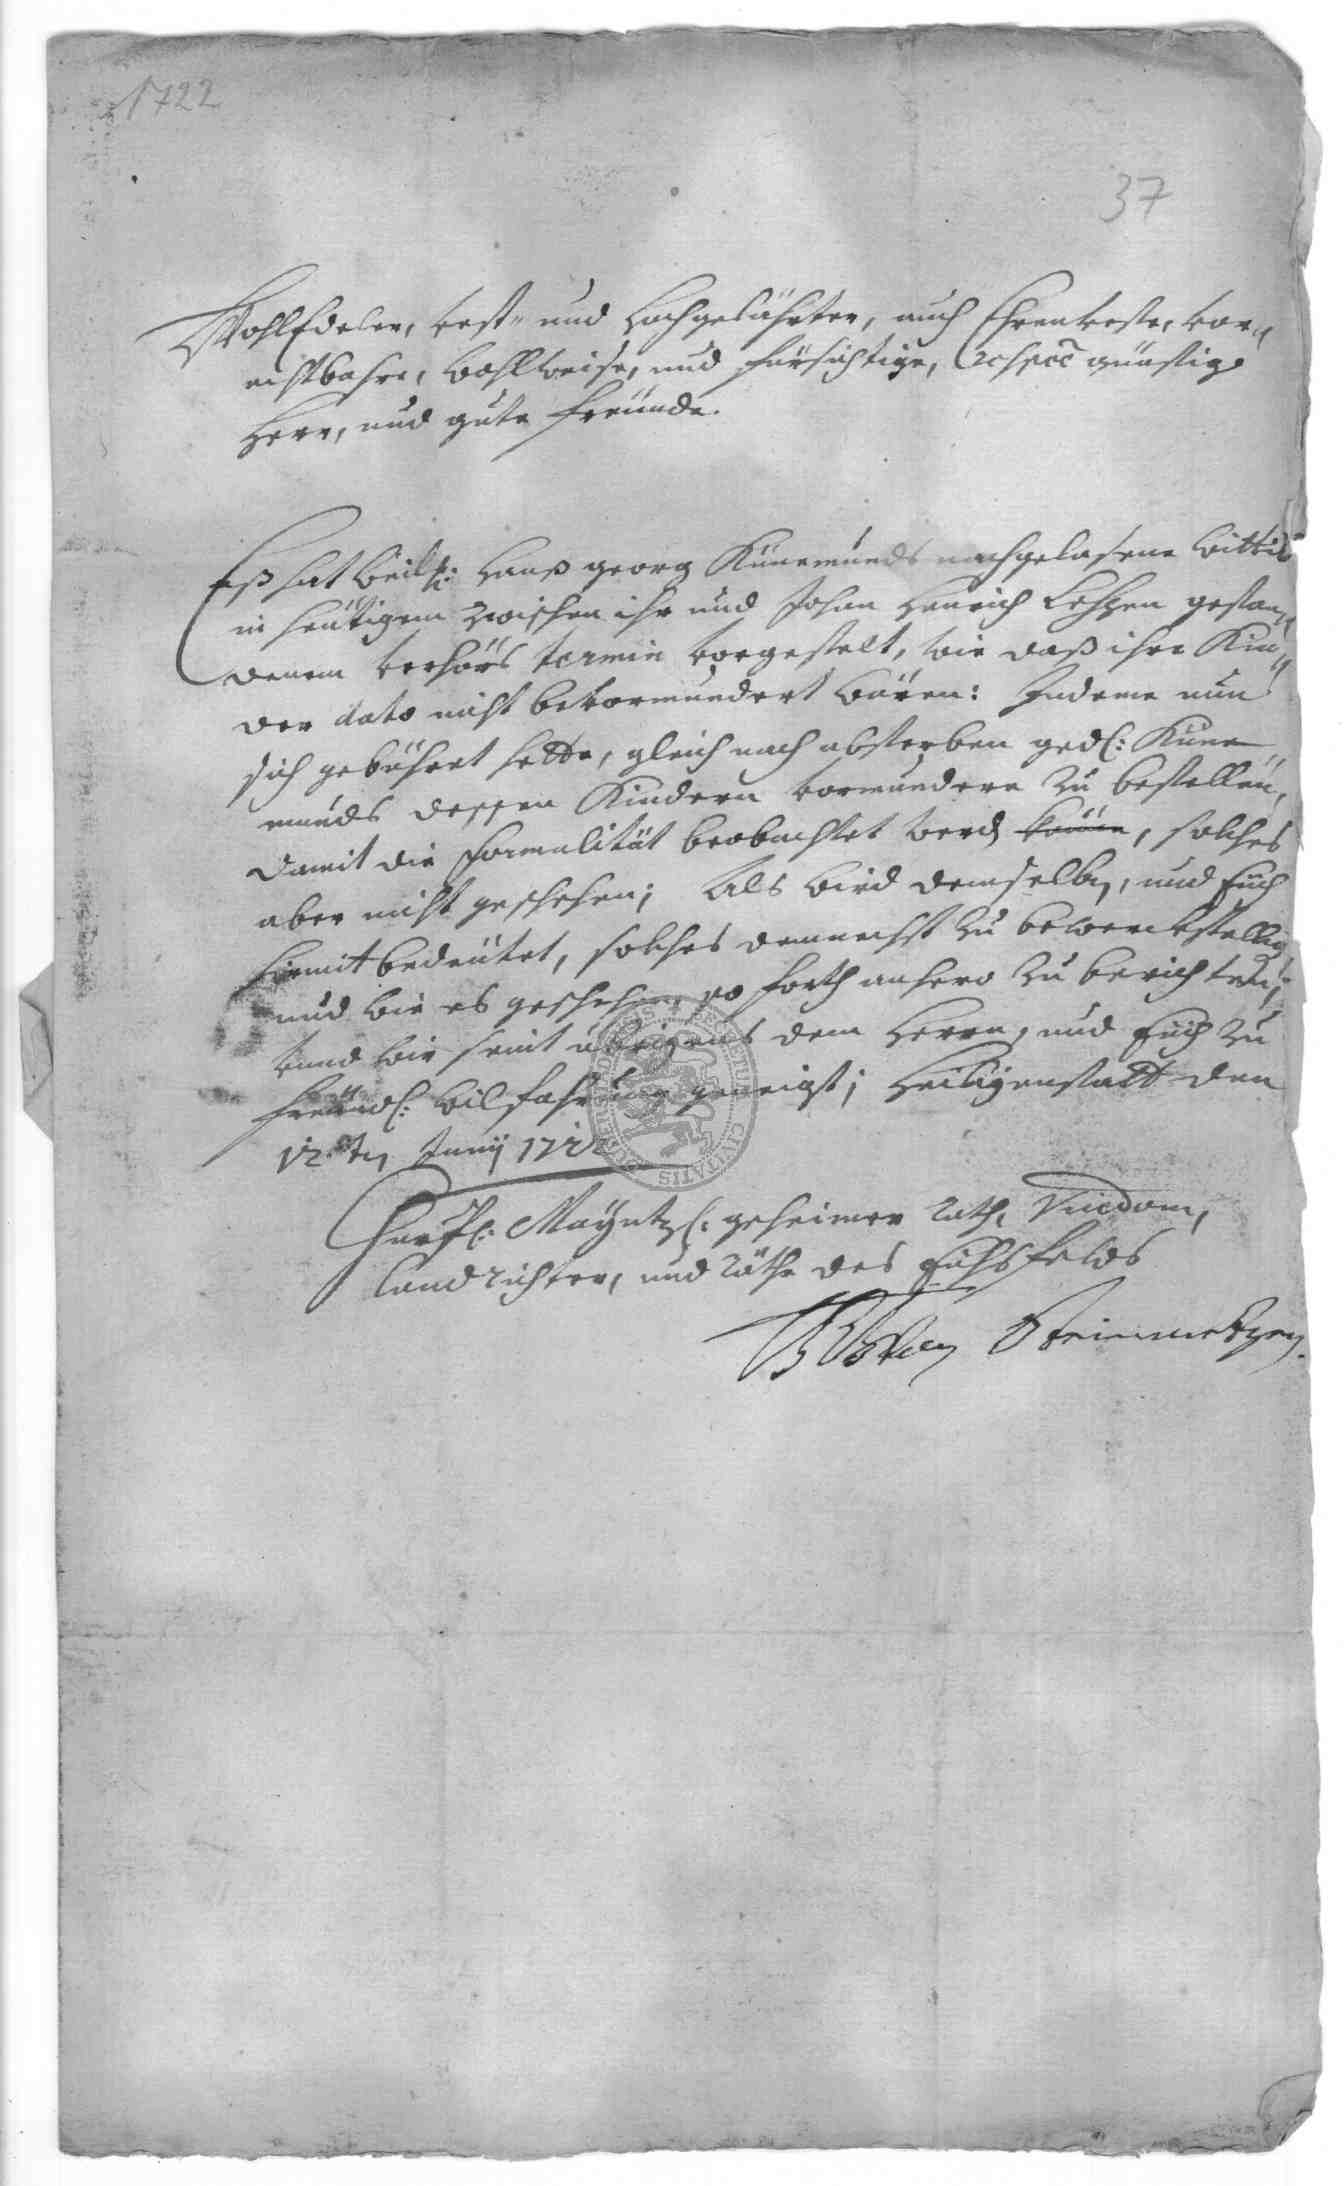 1722
37
WohlEdeler, vest- und Hochgelährter, auch Ehrenveste, vor-
achtbahre, Wohlweise, und fürsichtige, respec günstige
Herr, und gute freünde.
Eß hat Weilh: Hanß georg Künemunds nachgelasene Wittib
in heütigem zwischen ihr und Johan Henrich gestan-
denem verhörs termin vorgestelt, wie daß ihre Kin-
der dato nicht bevormundert wären: Indeme nun
sich gebühret hette, gleich nach absterben gedl: Küne
munds dessen Kindern vormundere zu bestellen,
damit die formalität beobachtet werd könne, solches
aber nicht geschehen; Als wird demselben, und Eüch
hiemit bedeütet, solches demnechst zu bewerckstellig
und wie es geschehen, so forth anhero zu berichten;
Und wir seint übrigens dem Herrn, und Eüch zu
freündl: wilfahrung geneigt; Heiligenstatt den
12.ten Junij 1722
Churfl: Mayntzl: geheimer Rath, Vicdom,
Landrichter, und Räthe des Eichsfelds
Steinmetzen
SECRETUM CIVITATIS